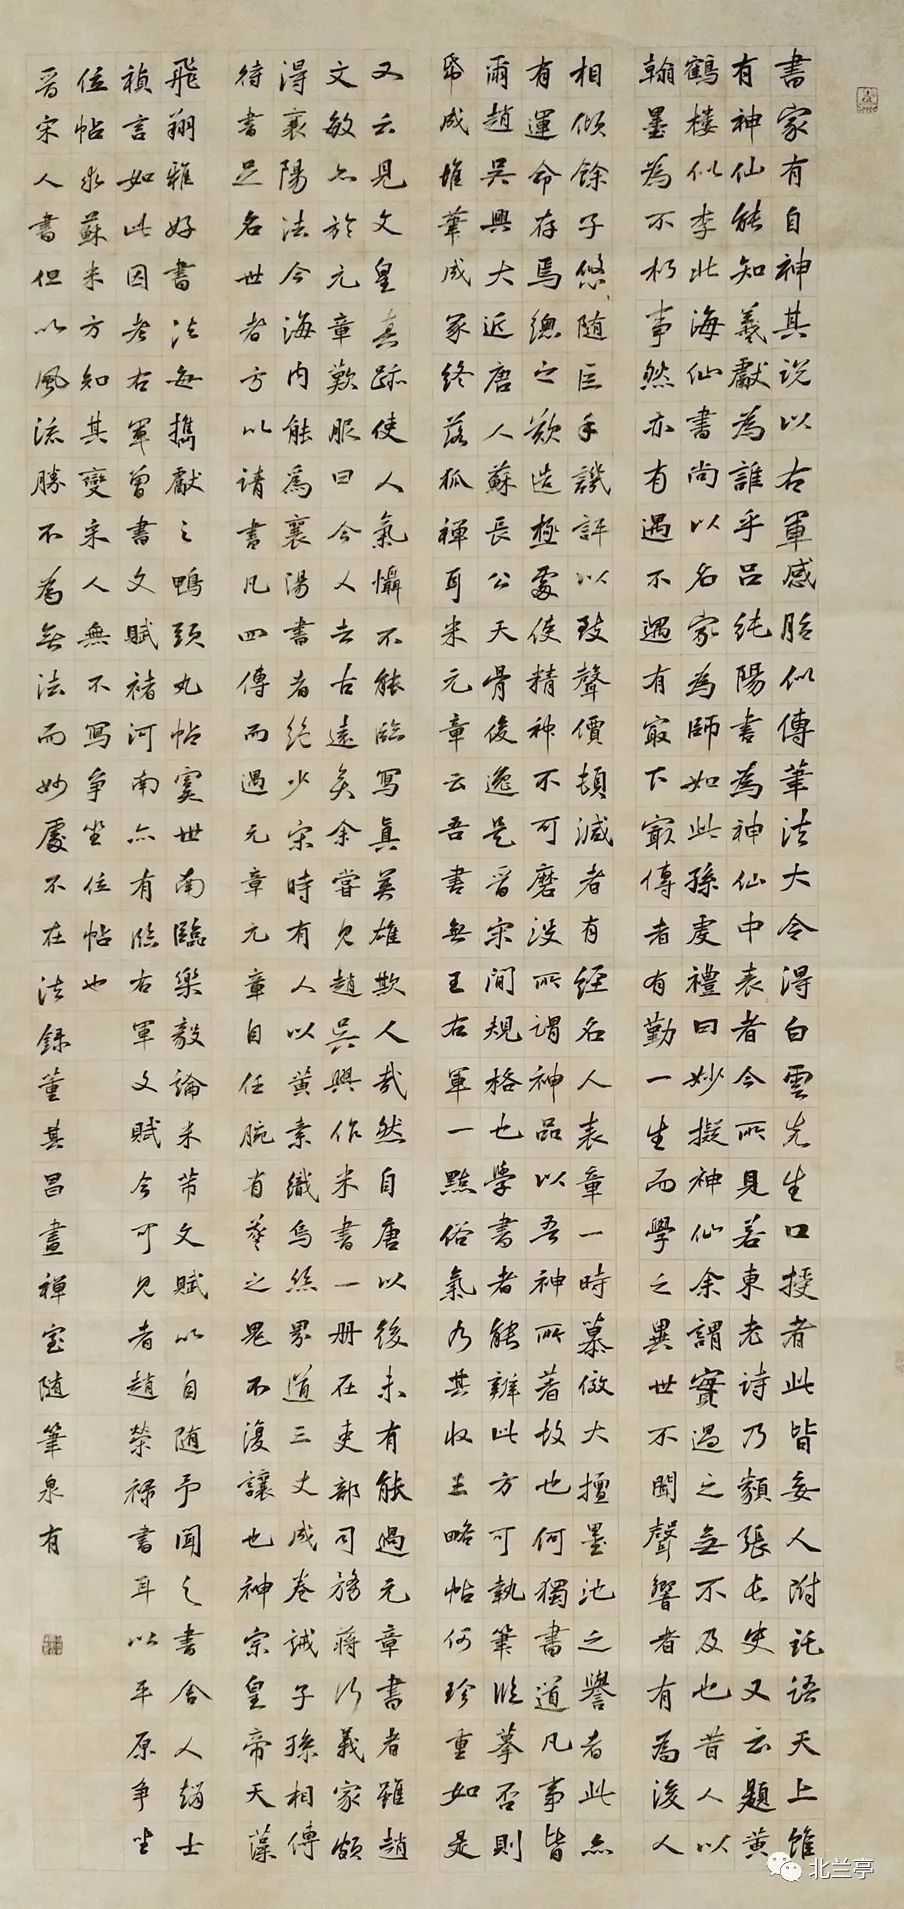 書家有自神其說以右軍感胎似傳筆法大令得白雲先生口授者此皆妄人附託語天上雖
有神仙能知羲獻為誰乎呂純陽書為神仙中表者今所見若東老詩乃類張長史又云題黃
鶴樓似李北海仙書尚以名家為師如此孫虔禮曰妙擬神仙余謂實過之無不及也昔人以
翰墨為不朽事然亦有遇不遇有最下最傳者有勤一生而學之異世不聞聲響者有為後人
相傾餘子悠悠隨巨手譏評以致聲價頓減者有經名人表章一時慕倣大擅墨池之譽者此亦
有運命存焉總之欺造極處使精神不可磨沒所謂神品以吾神所著故也何獨書道凡事皆
爾趙吳興大近唐人蘇長公天骨俊逸是晉宋間規格也學書者能辨此方可執筆臨摹否則
帋成堆筆成冢終落狐禪耳米元章云吾書無王右軍一點俗氣乃其收王略帖何珍重如是
又云見文皇真跡使人氣懾不能臨寫真英雄欺人哉然自唐以後未有能過元章書者雖趙
文敏亦於元章歎服曰今人去古遠矣余嘗見趙吳興作米書一冊在吏部司務蔣行義家頗
得襄陽法今海內能為襄陽書者絕少宋時有人以黃素織烏絲界道三丈成卷誡子孫相傳
待書足名世者方以請書凡四傳而遇元章元章自任腕有羲之鬼不復讓也神宗皇帝天藻
飛翔雅好書法每攜獻之鴨頭丸帖虞世南臨樂毅論米芾文賦以自隨予聞之書舍人趙士
禎言如此因考右軍曾書文賦褚河南亦有臨右軍文賦今可見者趙榮祿書耳以平原爭坐
位帖求蘇米方知其變宋人無不寫爭坐位帖也
晉宋人書但以風流勝不為無法而妙處不在法錄董其昌畫禪室隨筆泉有
北兰亭